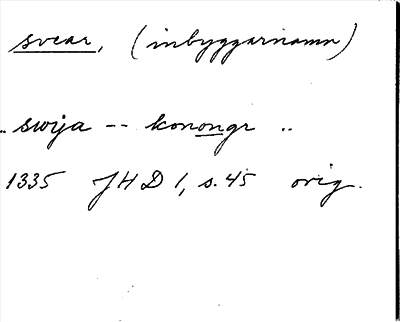 svear, (inbyggarnamn)
.. swija -- konongr ..
1335 JHD 1, s. 45 orig.